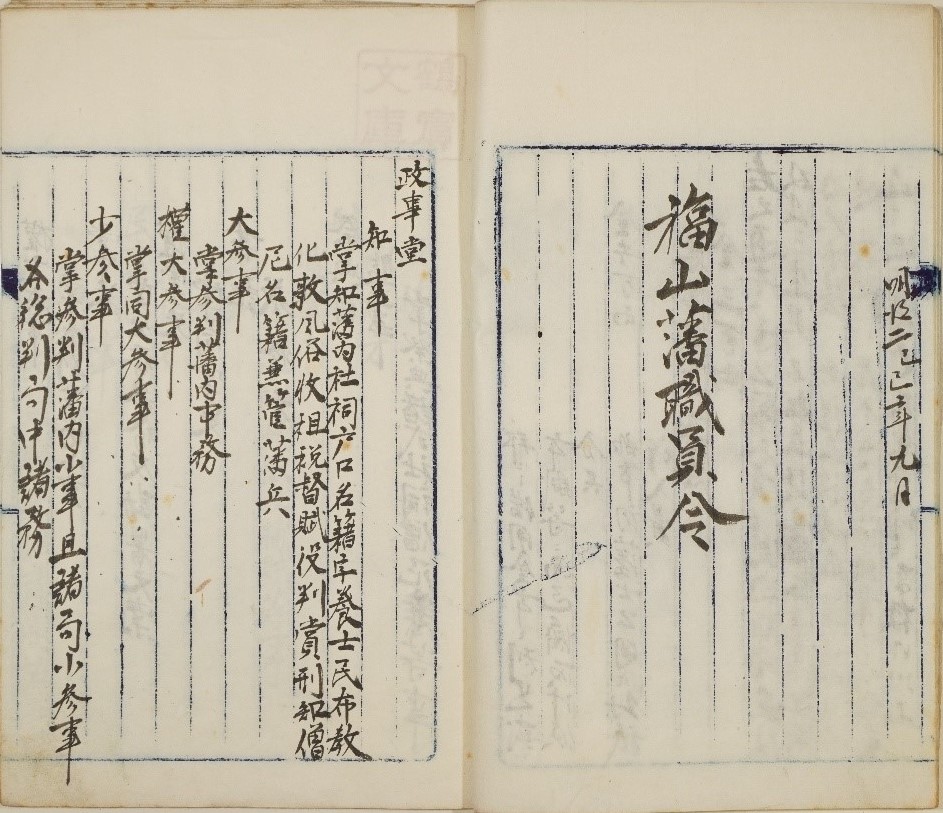 明治二己巳年九月
福山藩職員令
政事堂
知事
掌知藩内社祠戸口名籍字養士民布教
化敦風俗收租税督賦役判賞刑知僧
尼名籍兼管藩兵
大参事
掌参判藩内事務
權大参事
掌同大参事
少参事
掌参判藩内小事且諸局小参事
各總判局中諸務